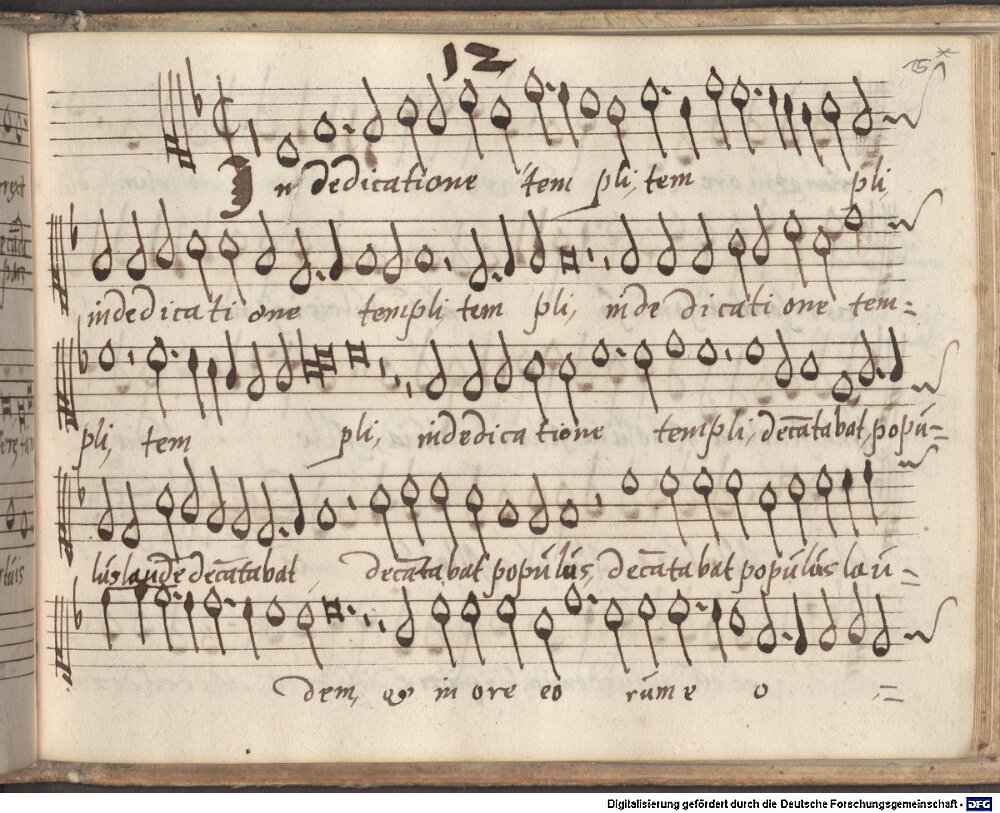 12
15
In dedicatione tem pli, tem pli,
in dedicati one templi, tem pli, in de dicati one tem=
pli, tem pli, in dedica tione templi, decãtabat popu=
lus laude decãtabat, decãtabat populus, decãtabat populus lau=
dem, & in ore eo rum e o =
Digitalisierung gefördert durch die Deutsche Forschungsgemeinschaft - DFG